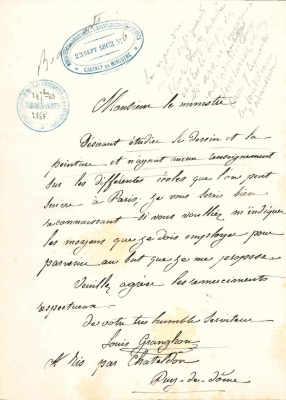 23 SEPT 1868
CABINET DU MINISTRE
BEAUX-ARTS
1868
Monsieur le ministre
Désirant étudier le dessin et la
peinture et n'ayant aucun renseignement
sur les différentes écoles que l'on peut
suivre à Paris, je vous serais bien
reconnaissant si vous vouliez m'indiquer
les moyens que je dois employer pour
parvenir au but que je me propose
Veuillez agréer les remerciments
respectueux
de votre très humble serviteur
Louis Granghon
à Ris par Chateldon
Puy-de-dôme